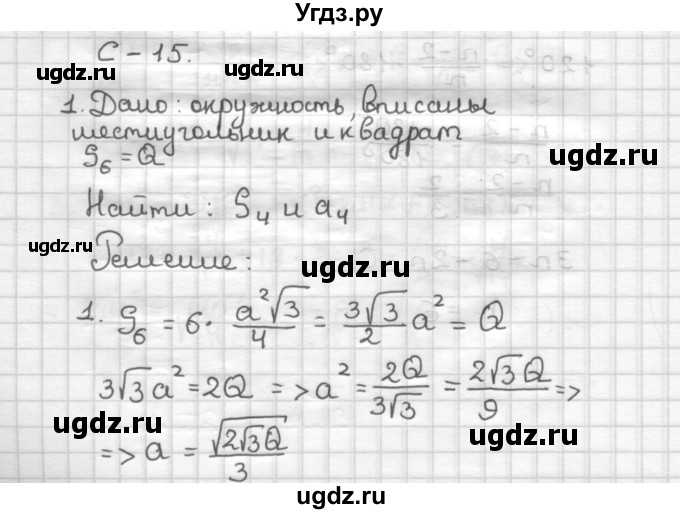 Угдз.ру
С - 15.
ugdz.ru
1. Дано: окружность, вписаны
шестиугольник и квадрат
ugdz.ru
S₆ = Q
Найти: S₄ и a₄
ugdz.ru
ugdz.ru
Решение:
ugdz.ru
1. S₆ = 6 · a²√3/4 = 3√3/2 a² = Q
3√3 a² = 2Q => a² = 2Q/3√3 = 2√3Q/9 =>
ugdz.ru
ugdz.ru
=> a = √(2√3Q)/3
ugdz.ru
ugdz.ru